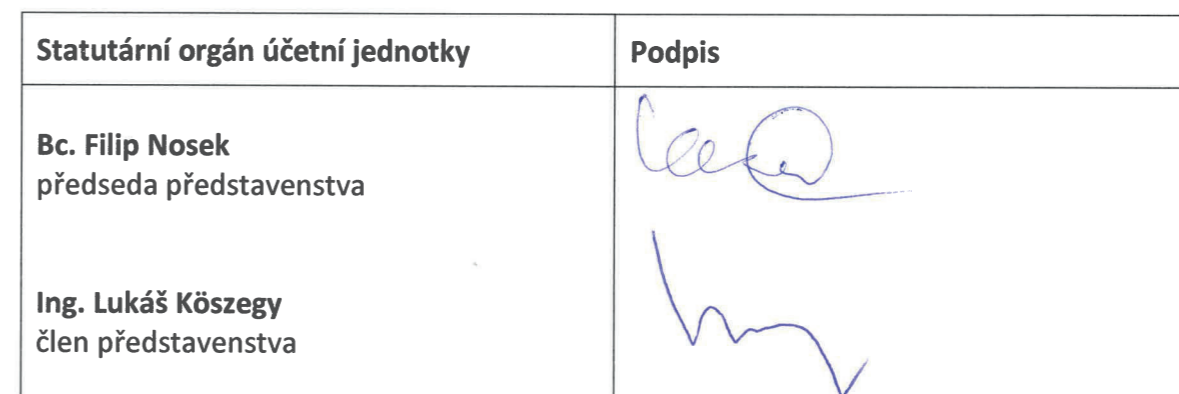 Statutární orgán účetní jednotky
Podpis
Bc. Filip Nosek
předseda představenstva
Ing. Lukáš Köszegy
člen představenstva